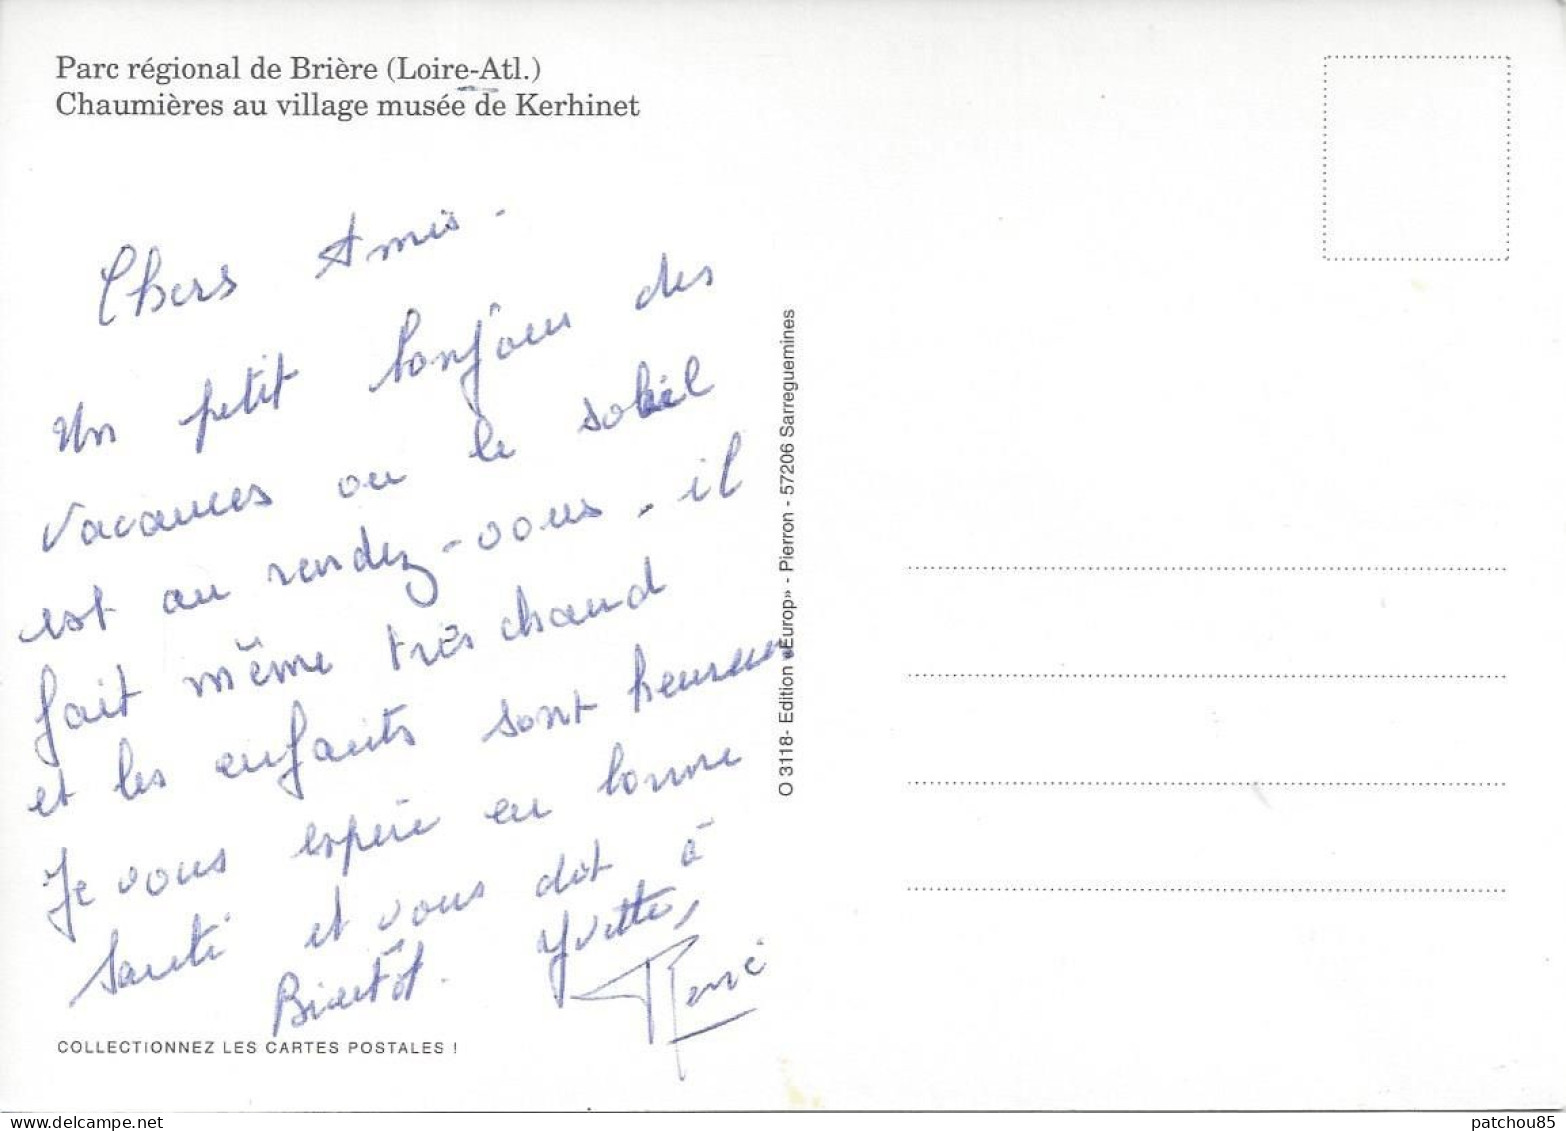 Parc régional de Brière (Loire-Atl.)
Chaumières au village musée de Kerhinet
Chers Amis -
Un petit bonjour des
vacances ou le soleil
est au rendez-vous - il
fait même très chaud
et les enfants sont heureux
Je vous espère en bonne
santé et vous dit à
Bientôt. Yvette,
René
COLLECTIONNEZ LES CARTES POSTALES !
O 3118- Edition «Europ» - Pierron - 57206 Sarreguemines
patchou85